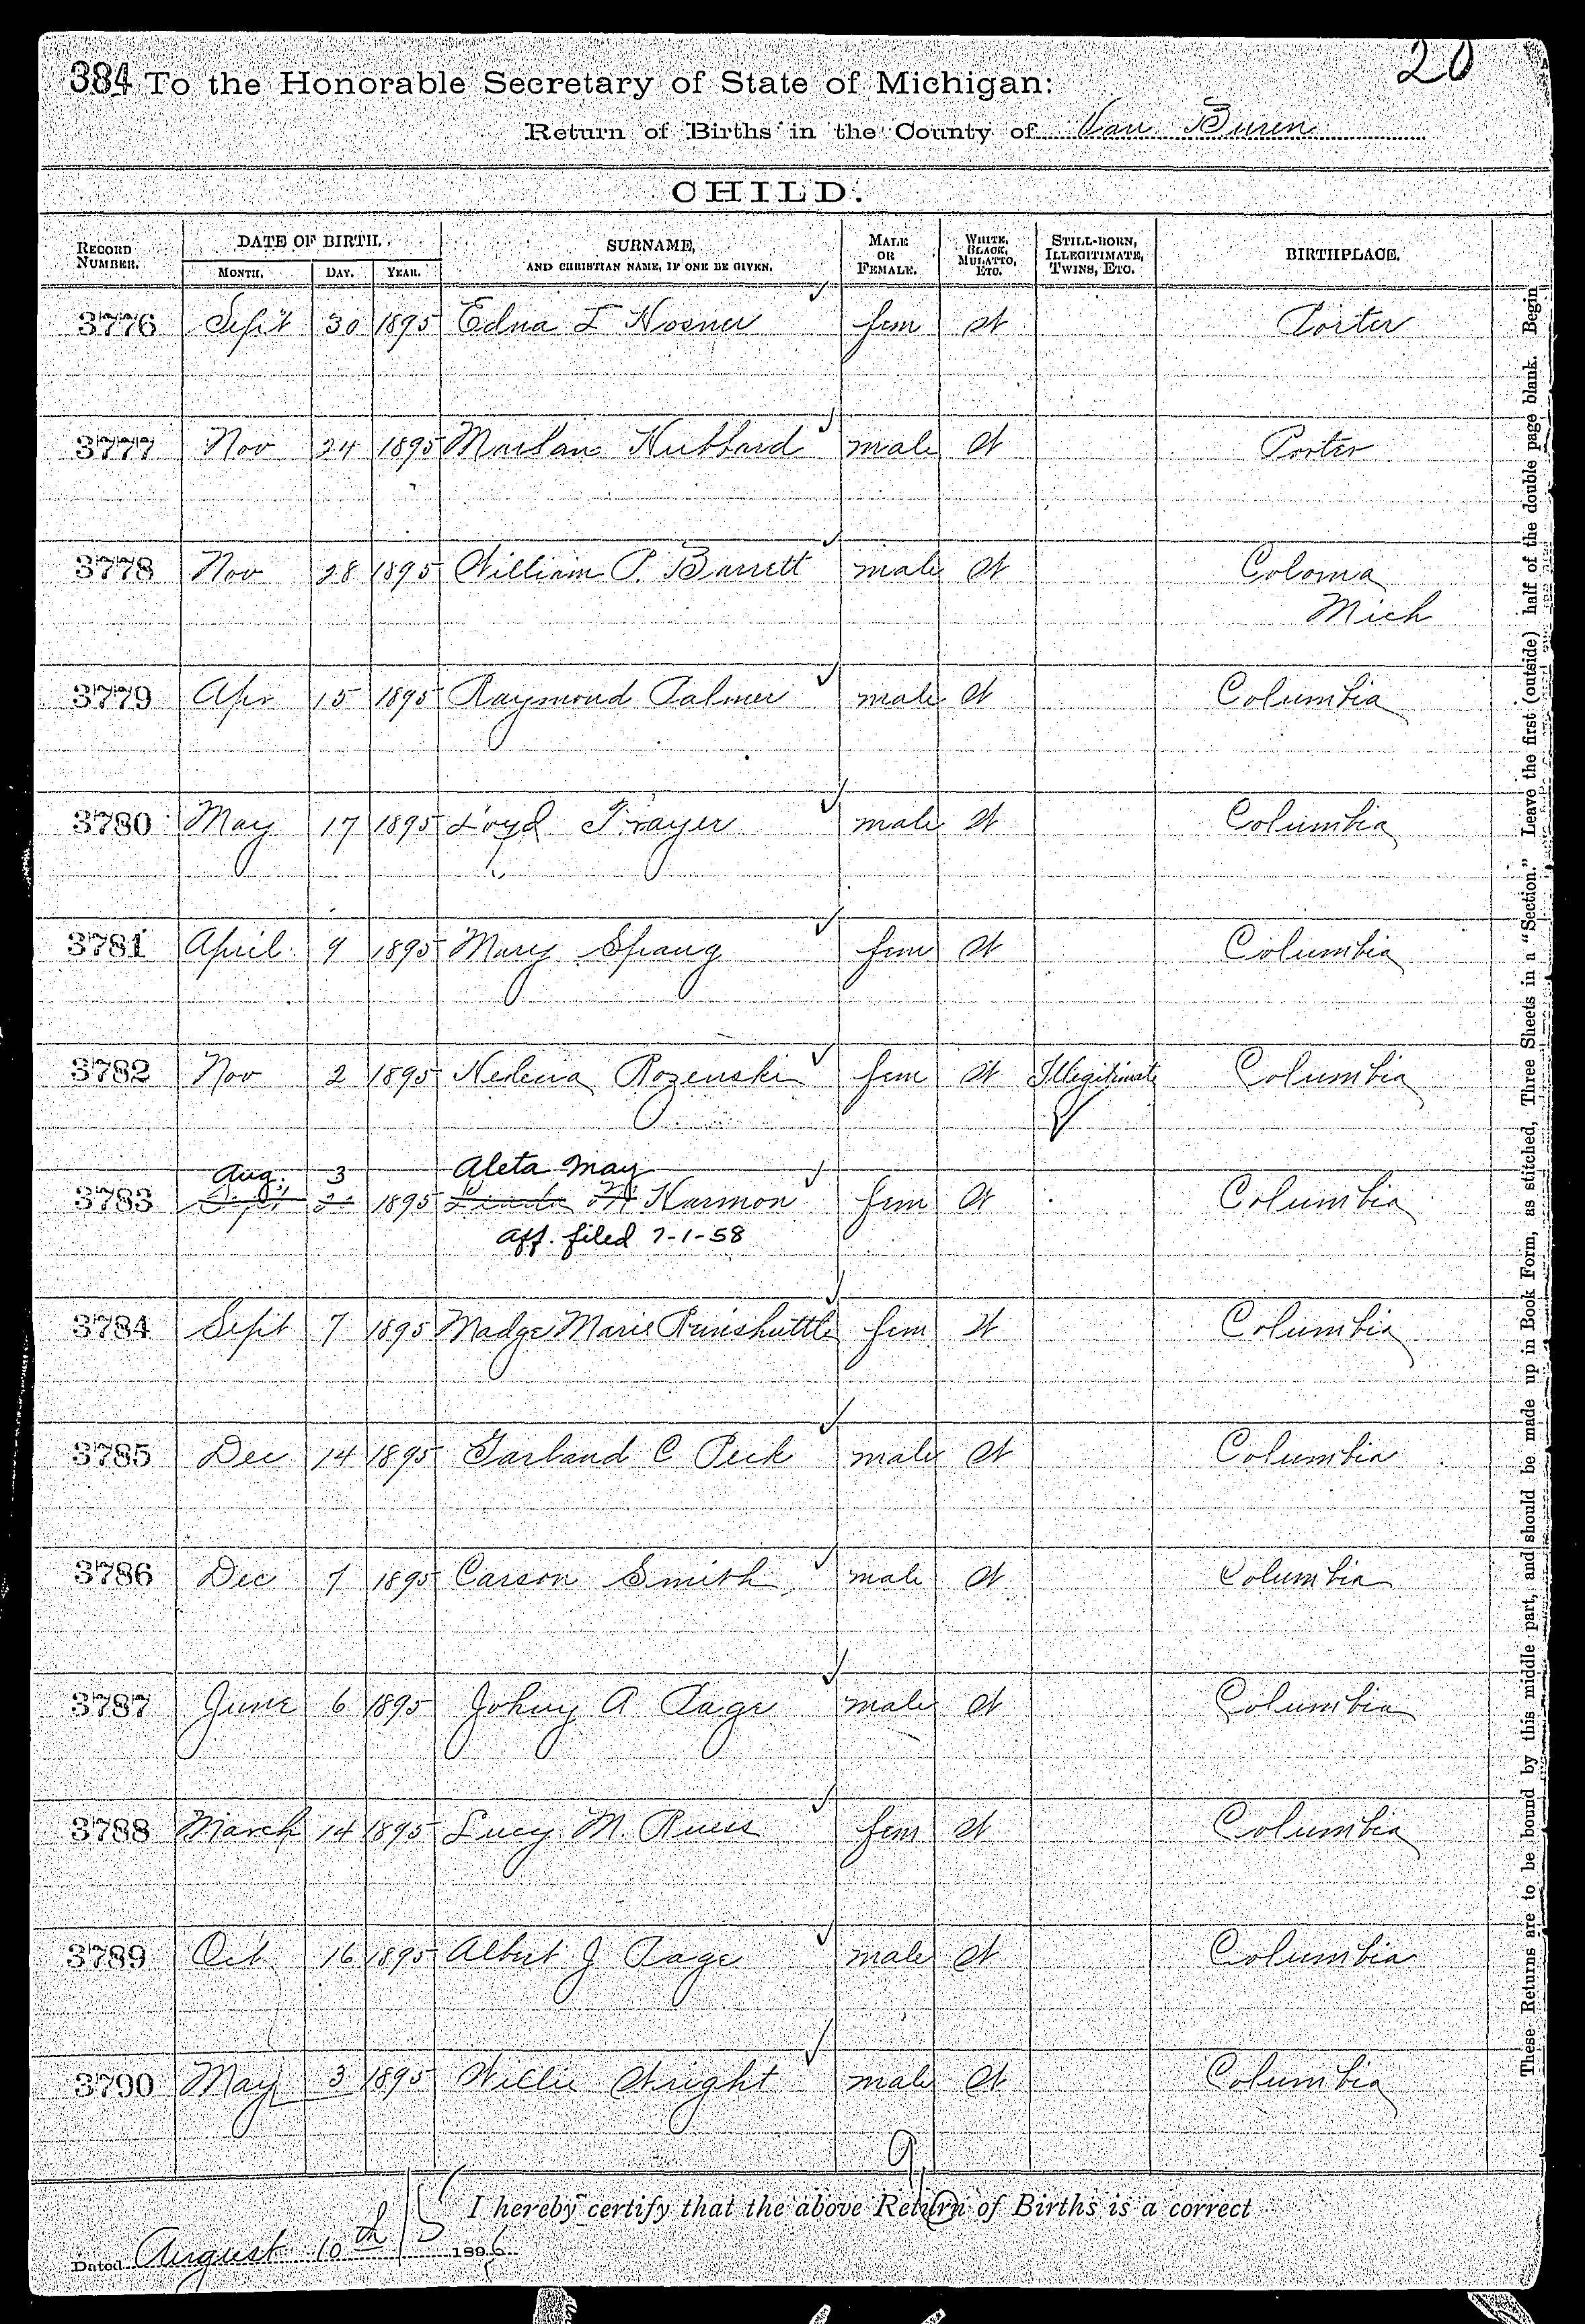 384 To the Honorable Secretary of State of Michigan: 20
Return of Births in the County of Van Buren
CHILD.
RECORD NUMBER. DATE OF BIRTH. MONTH. DAY. YEAR. SURNAME, AND CHRISTIAN NAME, IF ONE BE GIVEN. MALE OR FEMALE. WHITE, BLACK, MULATTO, ETC. STILL-BORN, ILLEGITIMATE, TWINS, ETC. BIRTHPLACE.
3776 Sept 30 1895 Edna I Hosner fem W Porter
3777 Nov 24 1895 Hubbard male W Porter
3778 Nov 28 1895 William P. Barrett male W Coloma
Mich
3779 Apr 15 1895 Raymond Palmer male W Columbia
3780 May 17 1895 Loyd Frayer male W Columbia
3781 April 9 1895 Mary Spang fem W Columbia
3782 Nov 2 1895 Rozenski fem W Illegitimate Columbia
Aug. 3 Aleta May
3783 Sept 1895 M Harmon fem W Columbia
aff. filed 7-1-58
3784 Sept 7 1895 Madge Marie fem W Columbia
3785 Dec 14 1895 Garland C Peck male W Columbia
3786 Dec 7 1895 Carson Smith male W Columbia
3787 June 6 1895 Johny A Page male W Columbia
3788 March 14 1895 Lucy M. Ruess fem W Columbia
3789 Oct 16 1895 Albert J Page male W Columbia
3790 May 3 1895 Willie Wright male W Columbia
9
15 I hereby certify that the above Return of Births is a correct
Dated August 10th 1896
These Returns are to be bound by this middle part, and should be made up in Book Form, as stitched, Three Sheets in a "Section." Leave the first (outside) half of the double page blank. Begin